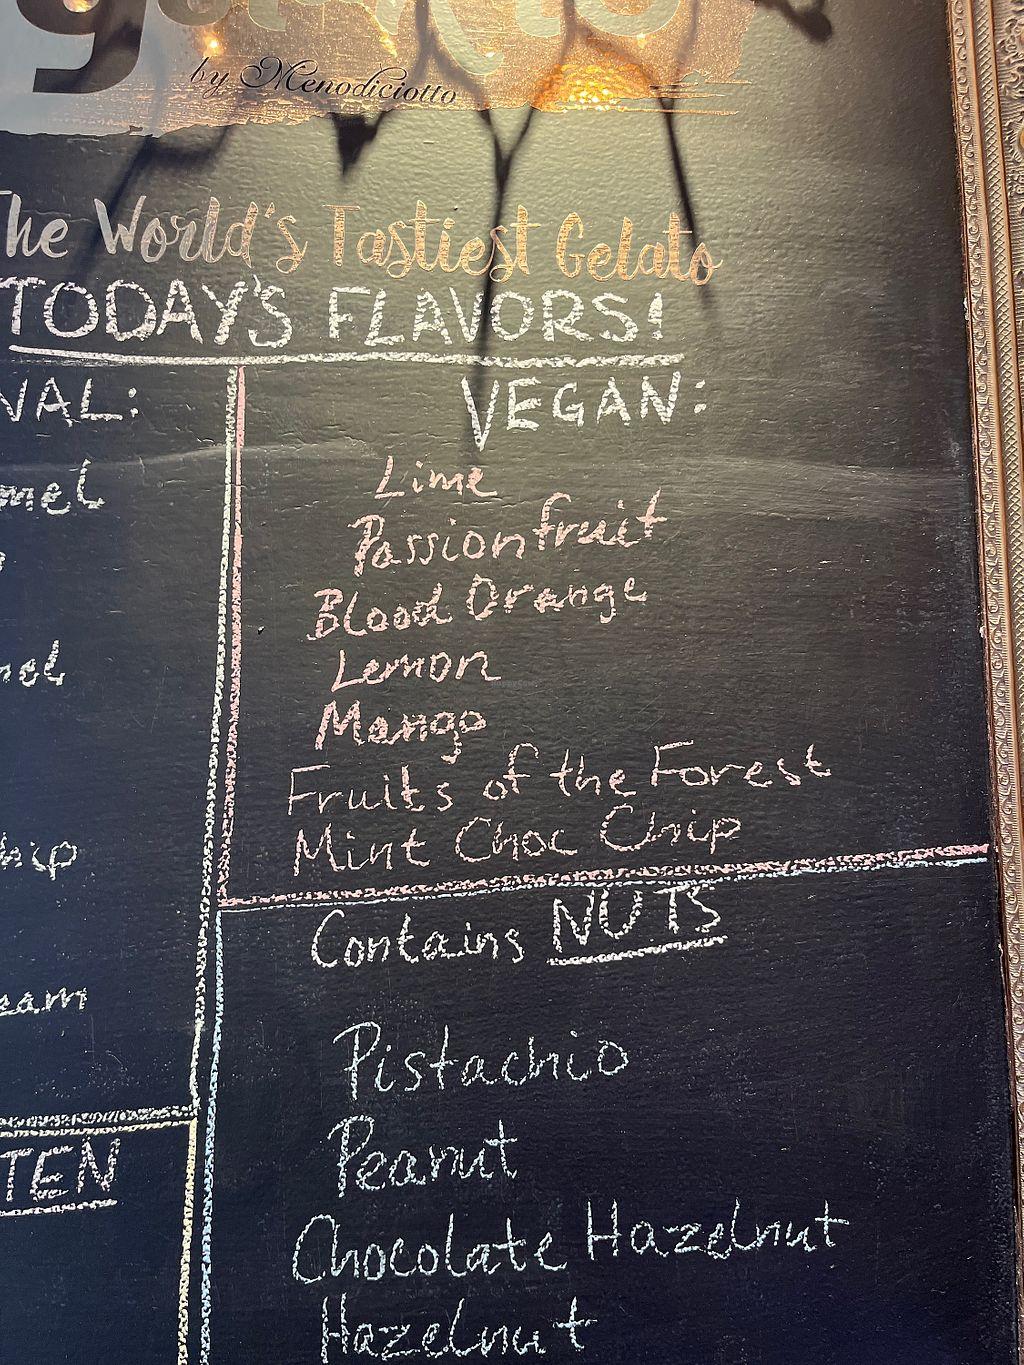 by Menodiciotto
The World's Tastiest Gelato
TODAY'S FLAVORS!
VEGAN:
Lime
Passionfruit
Blood Orange
Lemon
Mango
Fruits of the Forest
Mint Choc Chip
Contains NUTS
Pistachio
Peanut
Chocolate Hazelnut
Hazelnut